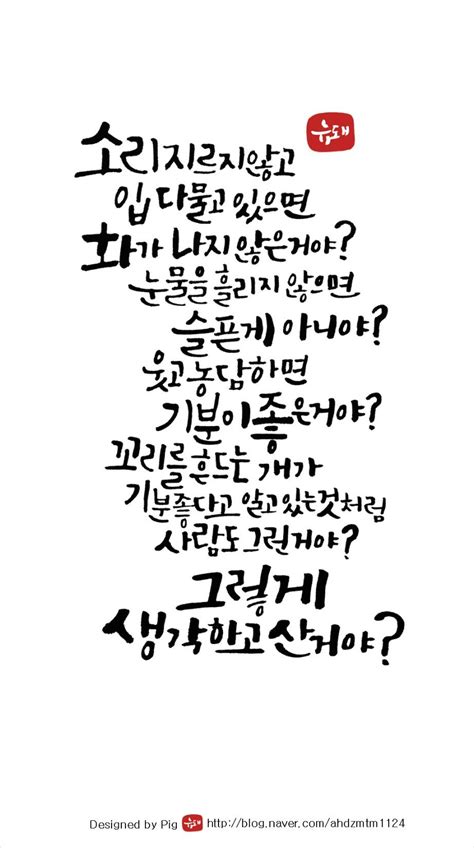 소리지르지않고
입 다물고 있으면
화가 나지 않은거야?
눈물을 흘리지 않으면
슬픈게 아니야?
웃고 농담하면
기분이 좋은거야?
꼬리를 흔드는 개가
기분좋다고 알고있는것처럼
사람도 그런거야?
그렇게
생각하고 산거야?
Designed by Pig http://blog.naver.com/ahdzmtm1124